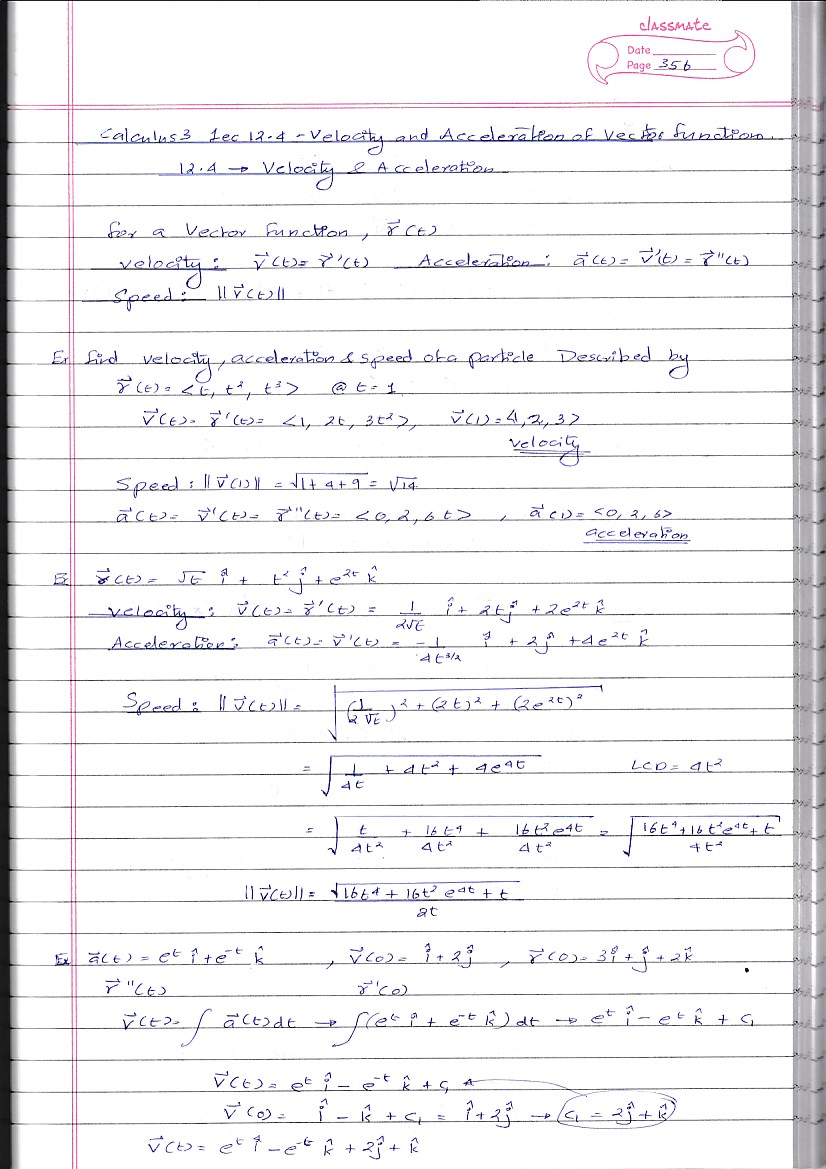 classmate
Date
Page 356
Calculus 3 Lec 12.4 - Velocity and Acceleration of Vector function.
12.4 → Velocity & Acceleration
for a Vector function, r⃗(t)
velocity: v⃗(t) = r⃗'(t) Acceleration: a⃗(t) = v⃗'(t) = r⃗''(t)
Speed: ||v⃗(t)||
Ex find velocity, acceleration & speed of a particle Described by
r⃗(t) = <t, t², t³> @ t = 1
v⃗(t) = r⃗'(t) = <1, 2t, 3t²>, v⃗(1) = <1, 2, 3>
velocity
Speed: ||v⃗(1)|| = √(1+4+9) = √14
a⃗(t) = v⃗'(t) = r⃗''(t) = <0, 2, 6t>, a⃗(1) = <0, 2, 6>
acceleration
Ex r⃗(t) = √t î + t² ĵ + e^(2t) k̂
velocity: v⃗(t) = r⃗'(t) = 1/(2√t) î + 2t ĵ + 2e^(2t) k̂
Acceleration: a⃗(t) = v⃗'(t) = -1/(4t^(3/2)) î + 2ĵ + 4e^(2t) k̂
Speed: ||v⃗(t)|| = √((1/(2√t))² + (2t)² + (2e^(2t))²)
= √(1/(4t) + 4t² + 4e^(4t)) LCD = 4t²
= √(t/(4t²) + 16t⁴/(4t²) + 16t²e^(4t)/(4t²)) = √((16t⁴ + 16t²e^(4t) + t)/(4t²))
||v⃗(t)|| = √(16t⁴ + 16t² e^(4t) + t)/(2t)
Ex a⃗(t) = e^t î + e^(-t) k̂, v⃗(0) = î + 2ĵ, r⃗(0) = 3î + ĵ + 2k̂
r⃗''(t) r⃗'(0)
v⃗(t) = ∫ a⃗(t) dt → ∫(e^t î + e^(-t) k̂) dt → e^t î - e^t k̂ + c₁
v⃗(t) = e^t î - e^(-t) k̂ + c₁
v⃗(0) = î - k̂ + c₁ = î + 2ĵ → c₁ = 2ĵ + k̂
v⃗(t) = e^t î - e^(-t) k̂ + 2ĵ + k̂